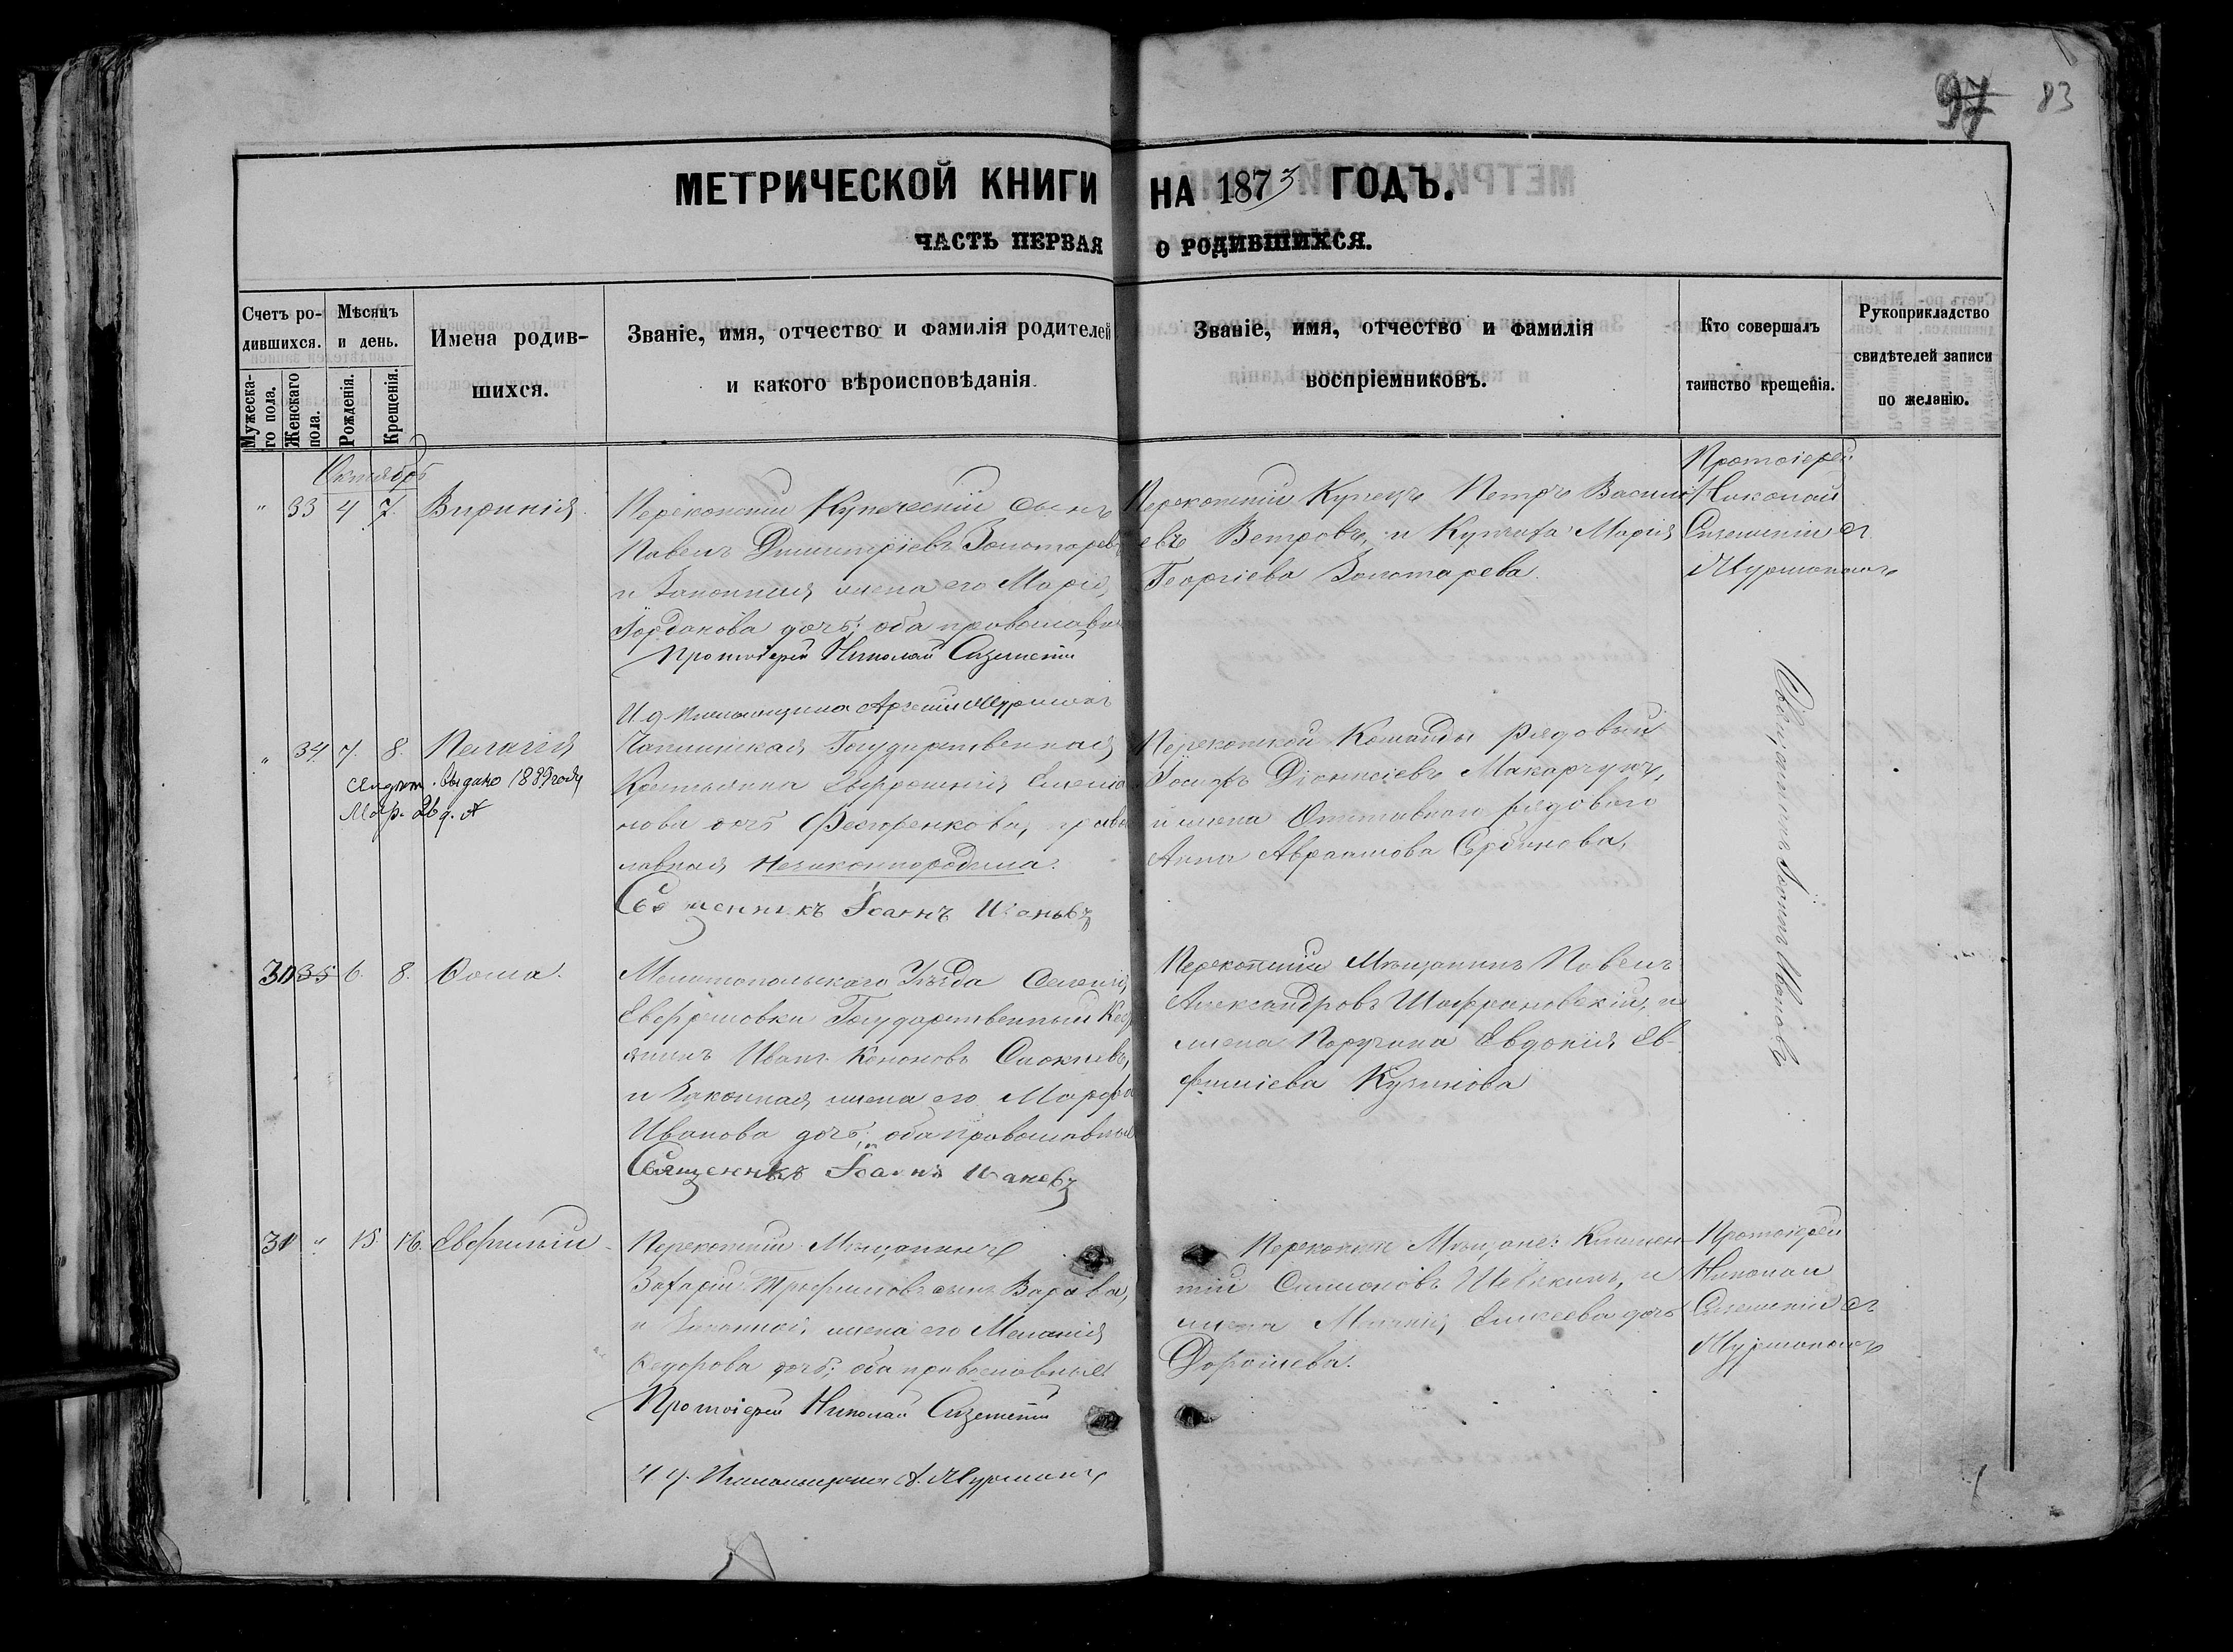 97 83
МЕТРИЧЕСКОЙ КНИГИ НА 1873 ГОДЪ.
ЧАСТЬ ПЕРВАЯ О РОДИВШИХСЯ.
Счетъ родившихся.
Мужескаго пола.
Женскаго пола.
Мѣсяцъ и день.
Рожденія.
Крещенія.
Имена родив-
шихся.
Званіе, имя, отчество и фамилія родителей
и какого вѣроисповѣданія.
Званіе, имя, отчество и фамилія
воспріемниковъ.
Кто совершалъ
таинство крещенія.
Рукоприкладство
свидѣтелей записи
по желанію.
Октябрь
" 33 4 7. Вирикія.
Перекопскій Купеческій сынъ
Павелъ Димитріевъ Золотаревъ
и Законная жена его Марія
Іорданова дочь; оба православн
Протоіерей Николай
И д Псаломщика
Перекопскій Купецъ Петръ Василі
евъ Ветровъ, и Купчиха Марія
Георгіева Золотарева.
Протоіерей
Николай
съ
" 34 7. 8. Пелагія
выдано 1889 году
Мар. 26 д.
Государственная
Крестьянка
нова дочь Федоренкова, право
славная Незаконнородила.
Священникъ Іоаннъ Ивановъ
Перекопской Команды рядовый
Іосифъ Діонисіевъ Макарчукъ,
и жена Отставнаго рядового
Анна Авраамова
Священникъ Іоаннъ Ивановъ
30 35 6. 8. Фома.
Мелитопольскаго Уѣзда Селенія
Ефремовки Государственный Кре
янинъ Иванъ Кононовъ
и Законная жена его Марфа
Иванова дочь; оба православные
Священникъ Іоаннъ Ивановъ
Перекопскій Мѣщанинъ Павелъ
Александровъ Шафрановскій, и
жена Поручика Евдокія Ев-
фиміева
31 " 15. 16. Евфимій
Перекопскій Мѣщанинъ
Захарій Трофимовъ сынъ Варава,
и Законная жена его Меланія
Федорова дочь; оба православные
Протоіерей Николай
И д. Псаломщика А.
Перекопскіе Мѣщане: Климен-
тій Симеоновъ и
жена Елисеева дочь
Дорошева.
Протоіерей
Николай
съ